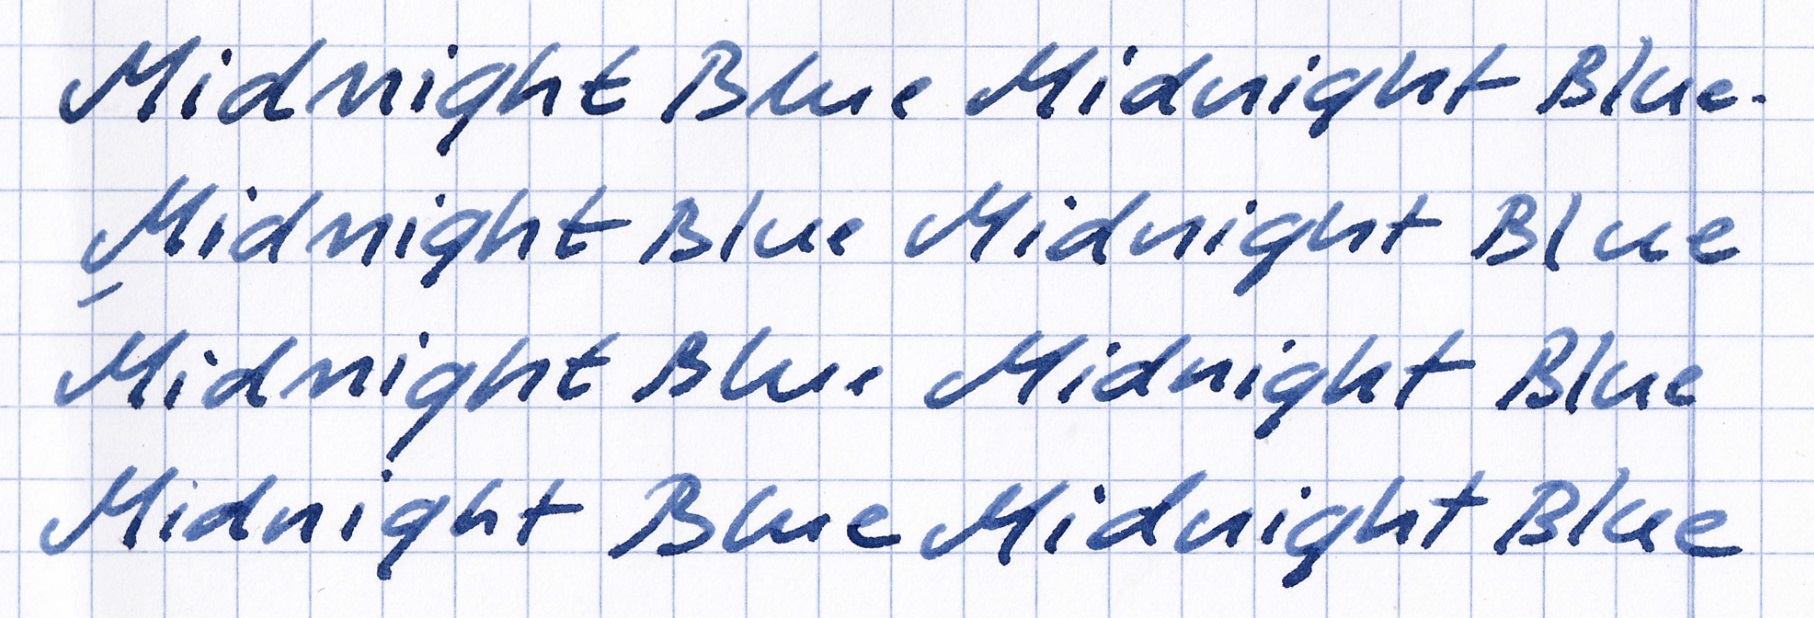 Midnight Blue Midnight Blue.
Midnight Blue Midnight Blue
Midnight Blue Midnight Blue
Midnight Blue Midnight Blue